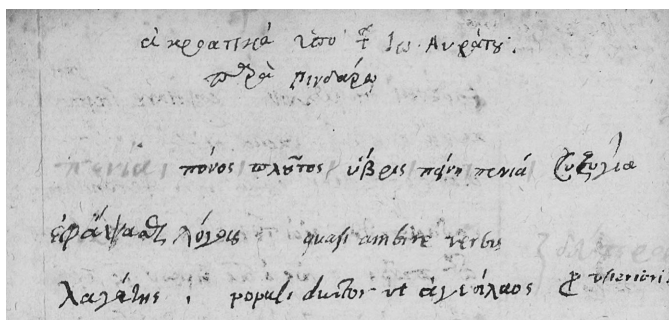 ὑπὸ Ἰω. Αὐράτου.
παρὰ πινδάρῳ
πόνος πλοῦτος ὕβρις πενιά συζυγία
ἐφάψασθαι λόγοις quasi ambire verbis
λαγέτης , populi ductor ut ἀγεσίλαος